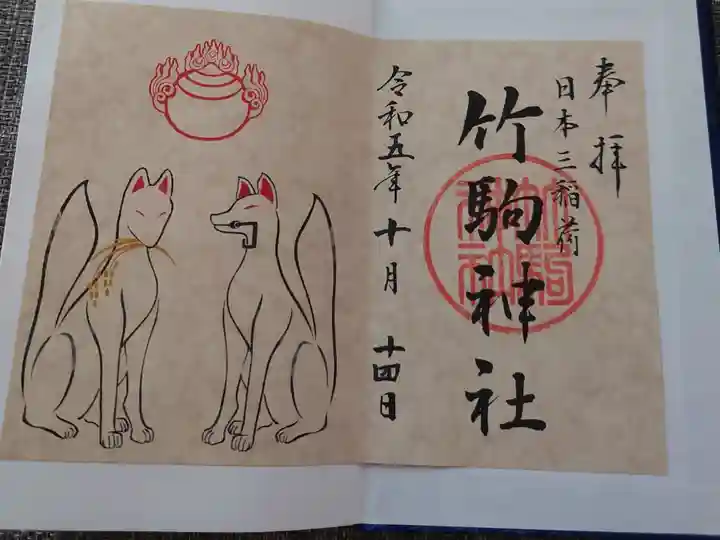 奉拝
日本三稲荷
竹駒神社
令和五年十月十四日